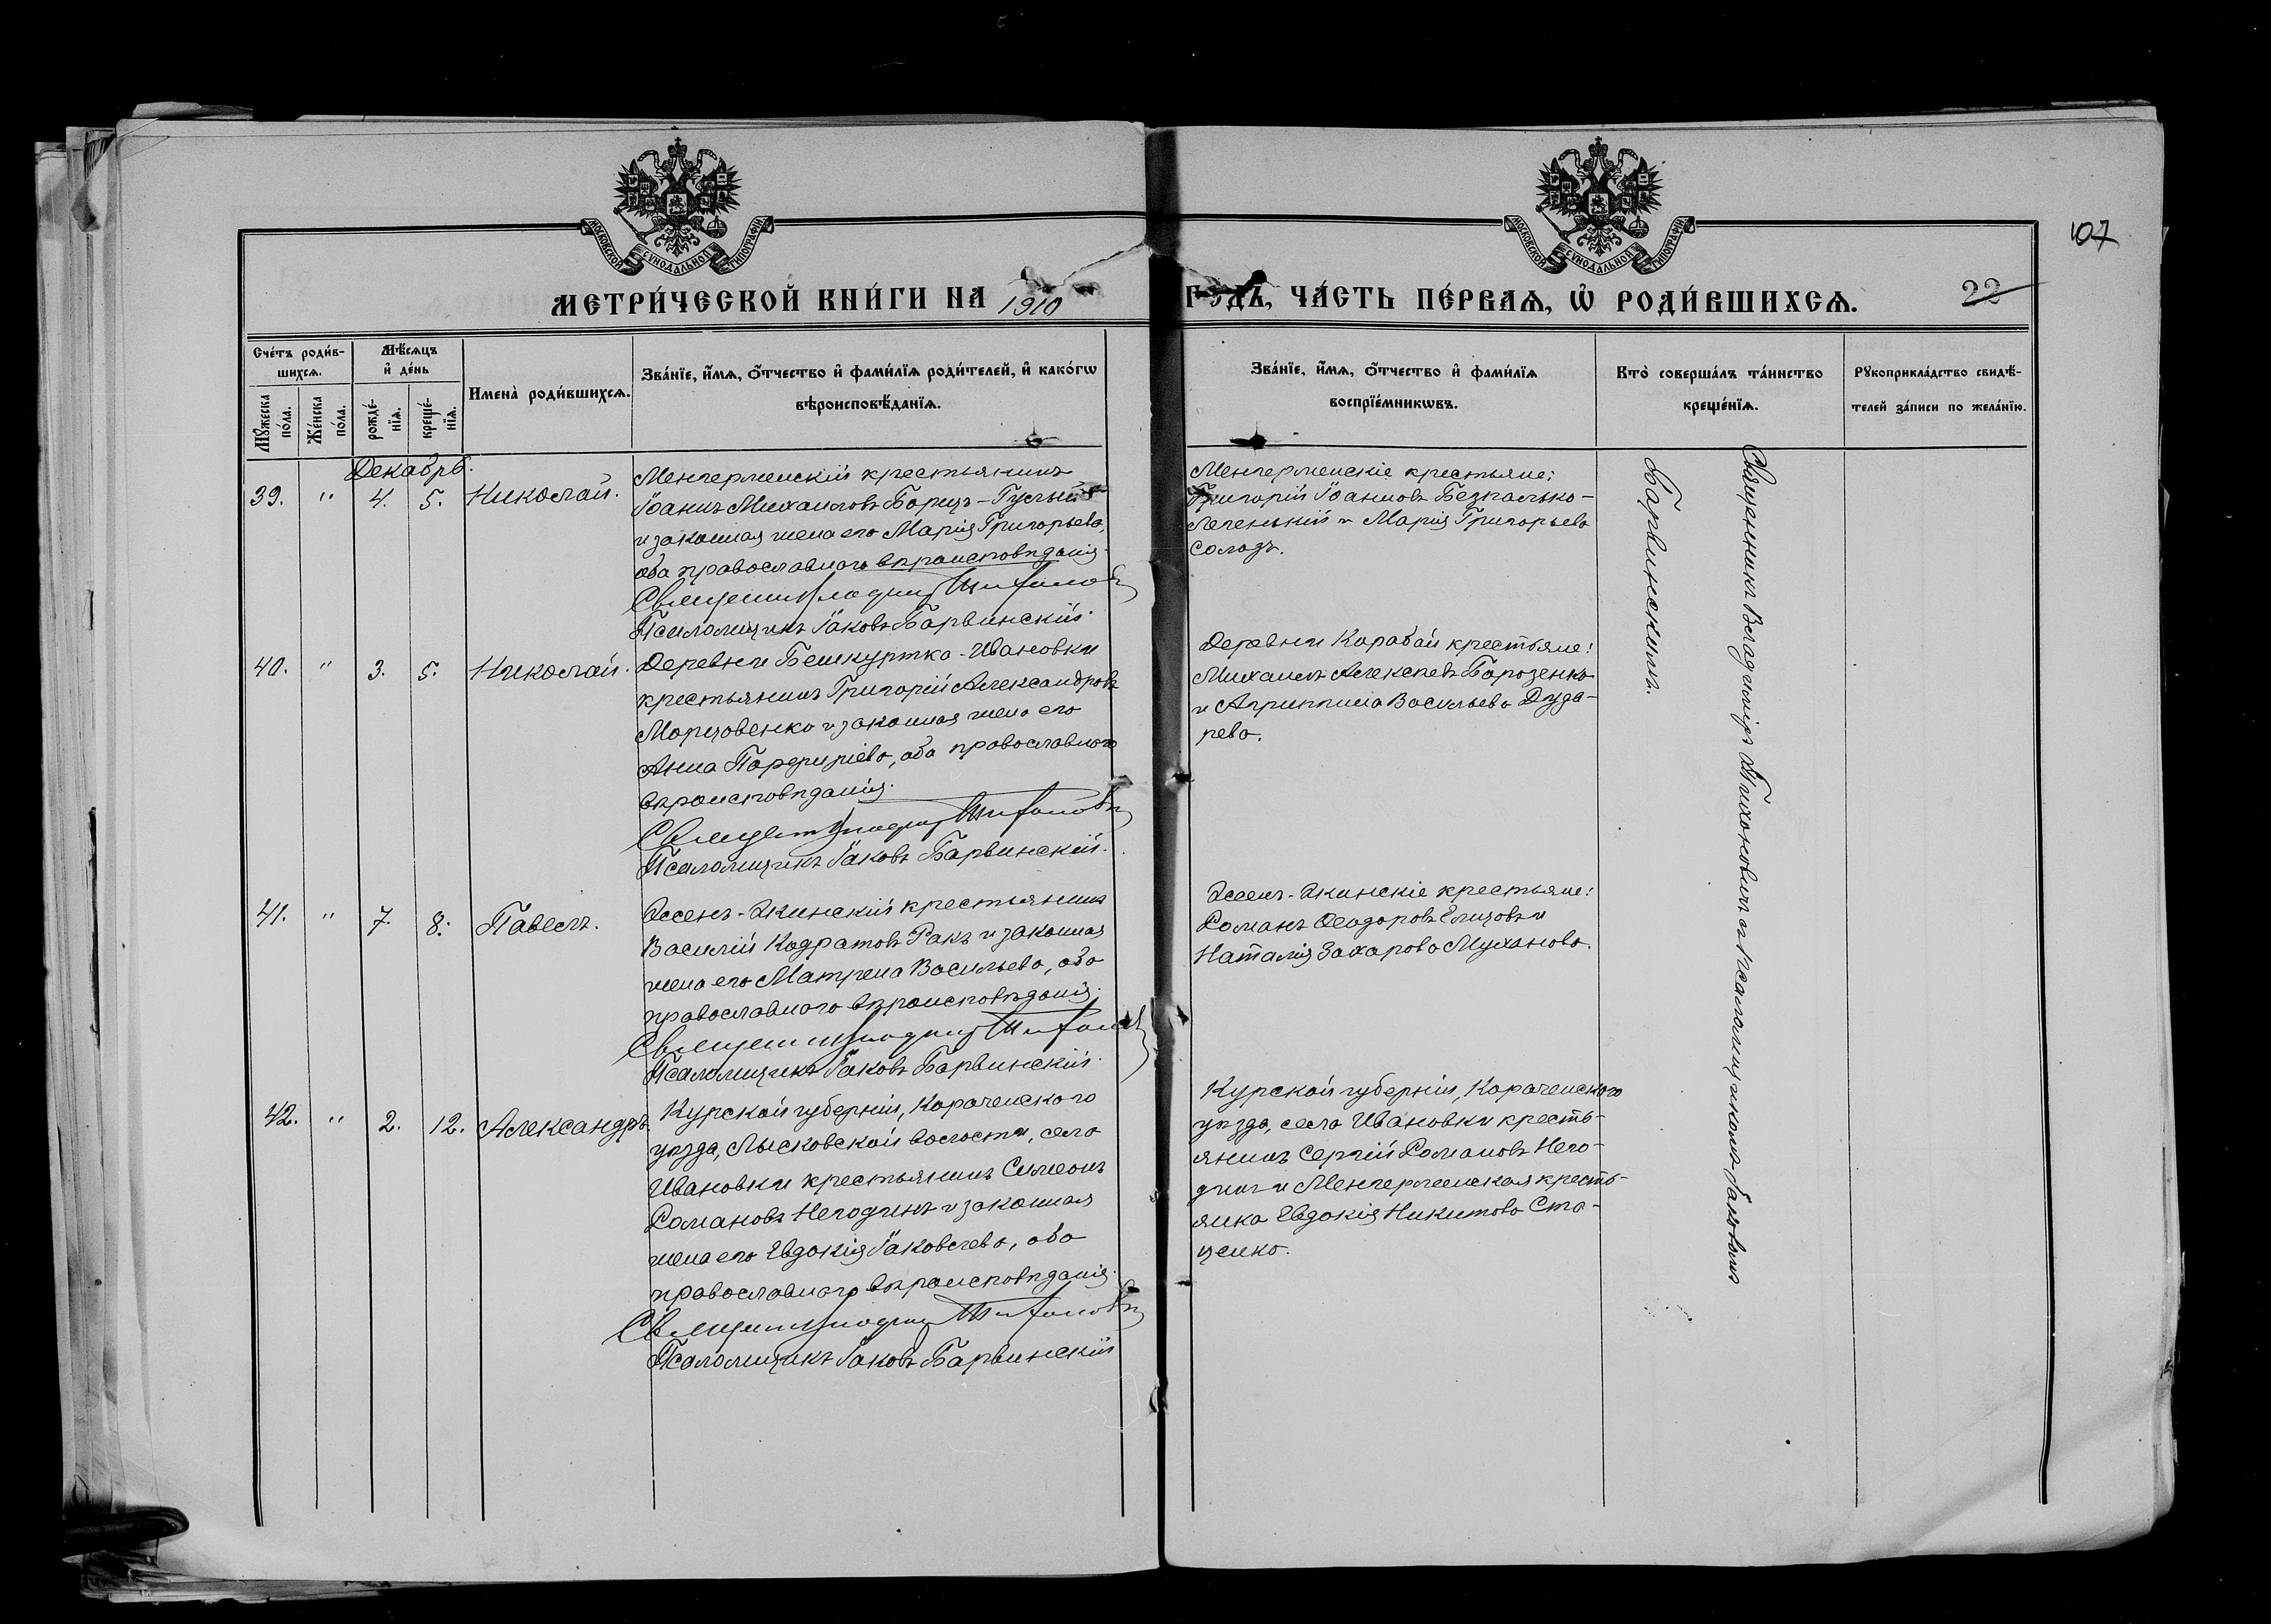 107
МОСКОВСКОЙ СУНОДАЛЬНОЙ ТИПОГРАФІИ
МОСКОВСКОЙ СУНОДАЛЬНОЙ ТИПОГРАФІИ
МЕТРИ́ЧЕСКОЙ КНИ́ГИ НА 1910 ГОДЪ, ЧА́СТЬ ПЕ́РВАѦ, Ѡ҆ РОДИ́ВШИХСѦ.
22
Сче́тъ роди́в-
шихсѧ.
Мꙋ́жеска
по́ла.
Же́нска
по́ла.
Мѣ́сѧцъ
и҆ де́нь
рожде́-
нїѧ.
креще́-
нїѧ.
Имена̀ роди́вшихсѧ.
Зва́нїе, и҆́мѧ, ѻ҆́тчество и҆ фами́лїѧ роди́телей, и҆ како́гѡ
вѣроисповѣ́данїѧ.
Зва́нїе, и҆́мѧ, ѻ҆́тчество и҆ фами́лїѧ
воспрїе́мникѡвъ.
Кто̀ соверша́лъ та́инство
креще́нїѧ.
Рꙋкоприкла́дство свидѣ́-
телей за́писи по жела́нїю.
Декабрь.
39. " 4. 5. Николай.
Менгерменскій крестьянинъ
Іоаннъ Михаиловъ Борщъ-Гуслый
и законная жена его Марія Григорьева,
оба православного вѣроисповѣданія.
Священникъ Владимір Тихонович
Псаломщикъ Іаковъ Барвинскій.
Менгерменскіе крестьяне:
Григорій Іоанновъ Безпалько-
Легенькій и Марія Григорьева
Солодъ.
40. " 3. 5. Николай.
Деревни Бешкуртка-Ивановки
крестьянинъ Григорій Александровъ
Морговенко и законная жена его
Анна Порфиріева, оба православного
вѣроисповѣданія.
Священ Владимір Тихонович
Псаломщикъ Іаковъ Барвинскій.
Деревни Карабай крестьяне:
Михаилъ Алексѣевъ Борозенко
и Агриппина Васильева Дуда-
рева.
41. " 7. 8. Павелъ.
Эссенъ-Экинскій крестьянинъ
Василій Кодратовъ Ракъ и законная
жена его Матрена Васильева, оба
православного вѣроисповѣданія.
Священник Владимір Тихонович
Псаломщикъ Іаковъ Барвинскій.
Эссенъ-Экинскіе крестьяне:
Романъ Ѳеодоровъ Елицовъ и
Наталія Захарова Муханова.
42. " 2. 12. Александръ.
Курской губерніи, Корочен­ского
уѣзда, Лысковской волости, села
Ивановки крестьянинъ Симеонъ
Романовъ Негодинъ и законная
жена его Евдокія Іаковлева, оба
православного вѣроисповѣданія.
Священник Владимір Тихонович
Псаломщикъ Іаковъ Барвинскій
Курской губерніи, Короченского
уѣзда, села Ивановки кресть-
янинъ Сергій Романовъ Него-
динъ и Менгерменская кресть-
янка Евдокія Никитова Ста-
ценко.
Священникъ Владиміръ Тихоновичъ съ псаломщикомъ Іаковомъ
Барвинскимъ.